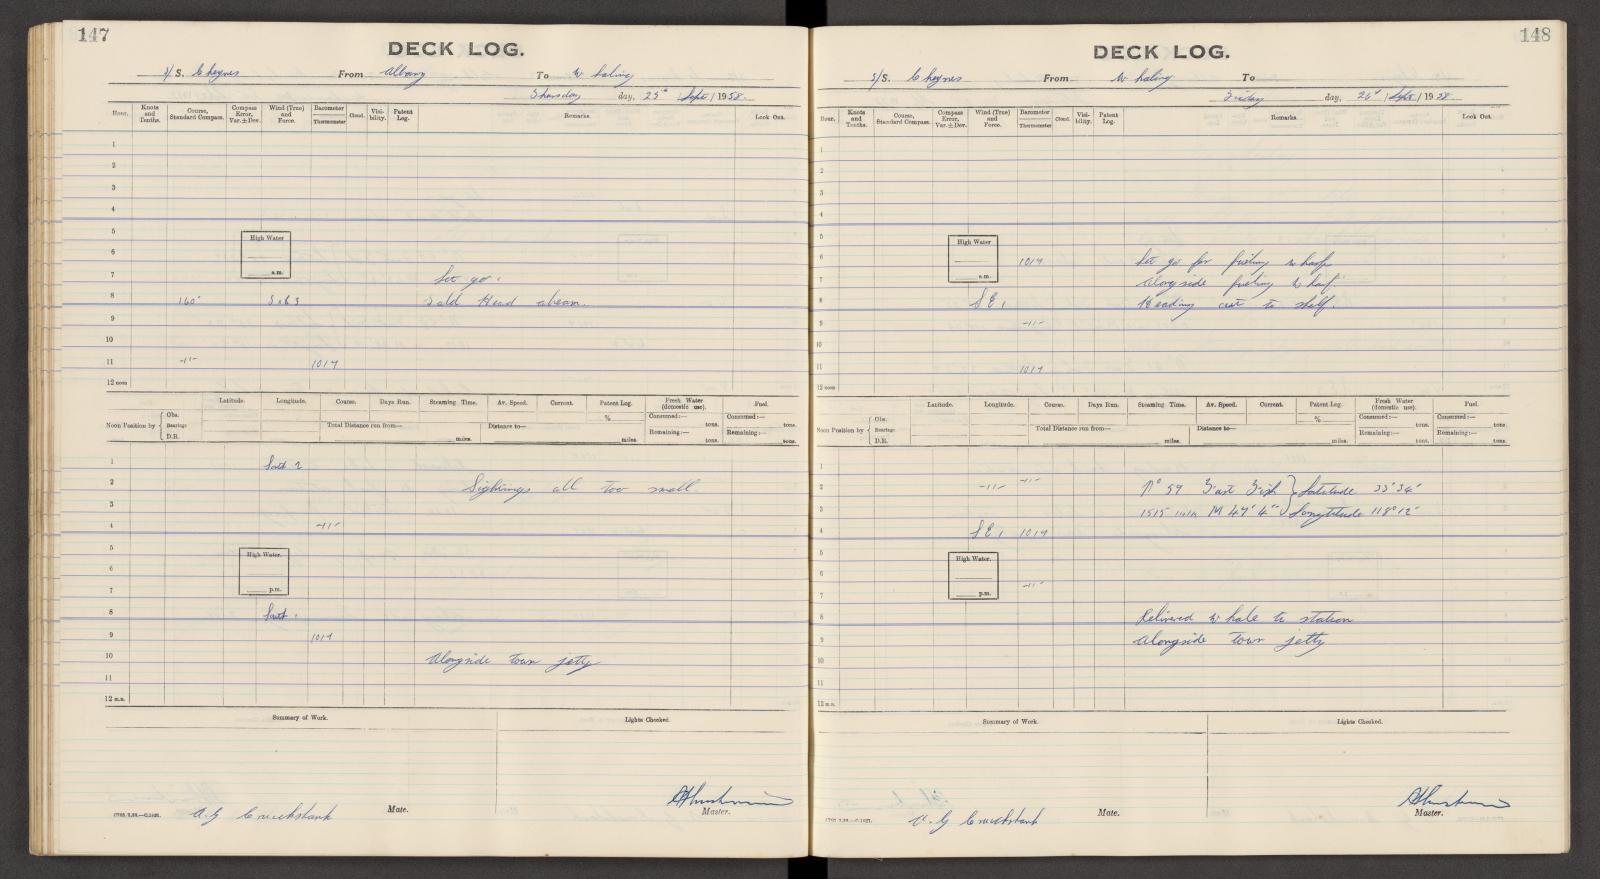 147
DECK LOG.
S/S. Cheynes From Albany To Whaling
Thursday day, 25th / Sept / 1958.
Hour. Knots and Tenths. Course, Standard Compass. Compass Error, Var. ± Dev. Wind (True) and Force. Barometer Thermometer Cloud. Visibility. Patent Log. Remarks. Look Out.
1
2
3
4
5
High Water
6
a.m.
7 Let go.
8 160° Bald Head abeam.
9
10
11 -11- 1017
12 noon
Latitude. Longitude. Course. Days Run. Steaming Time. Av. Speed. Current. Patent Log. Fresh Water (domestic use). Fuel.
Noon Position by { Obs. Bearings D.R.
% Consumed:— tons. Consumed:— tons.
Total Distance run from— miles. Distance to— miles. Remaining:— tons. Remaining:— tons.
1 South 2
2 Sightings all too small.
3
4 -11-
5
High Water.
6
7 p.m.
8 South
9 1017
10 Alongside town jetty
11
12 m.n.
Summary of Work. Lights Checked.
A. G Cruickshank Mate.
Master.
148
DECK LOG.
S/S. Cheynes From Whaling To
Friday day, 26th / Sept / 1958
Hour. Knots and Tenths. Course, Standard Compass. Compass Error, Var. ± Dev. Wind (True) and Force. Barometer Thermometer Cloud. Visibility. Patent Log. Remarks. Look Out.
1
2
3
4
5
High Water
6 1017 Let go for fueling wharf
a.m.
7 Alongside fueling wharf.
8 SE 1 Heading out to shelf.
9 -11-
10
11 1017
12 noon
Latitude. Longitude. Course. Days Run. Steaming Time. Av. Speed. Current. Patent Log. Fresh Water (domestic use). Fuel.
Noon Position by { Obs. Bearings D.R.
% Consumed:— tons. Consumed:— tons.
Total Distance run from— miles. Distance to— miles. Remaining:— tons. Remaining:— tons.
1
2 -11- -11- No 59 Fast Fish } Latitude 35° 34'
3 1515 M 47' 4" } Longtitude 118° 12'
4 SE 1 1017
5
High Water.
6 -11-
7 p.m.
8 Delivered whale to station
9 Alongside town jetty
10
11
12 m.n.
Summary of Work. Lights Checked.
A. G Cruickshank Mate.
Master.